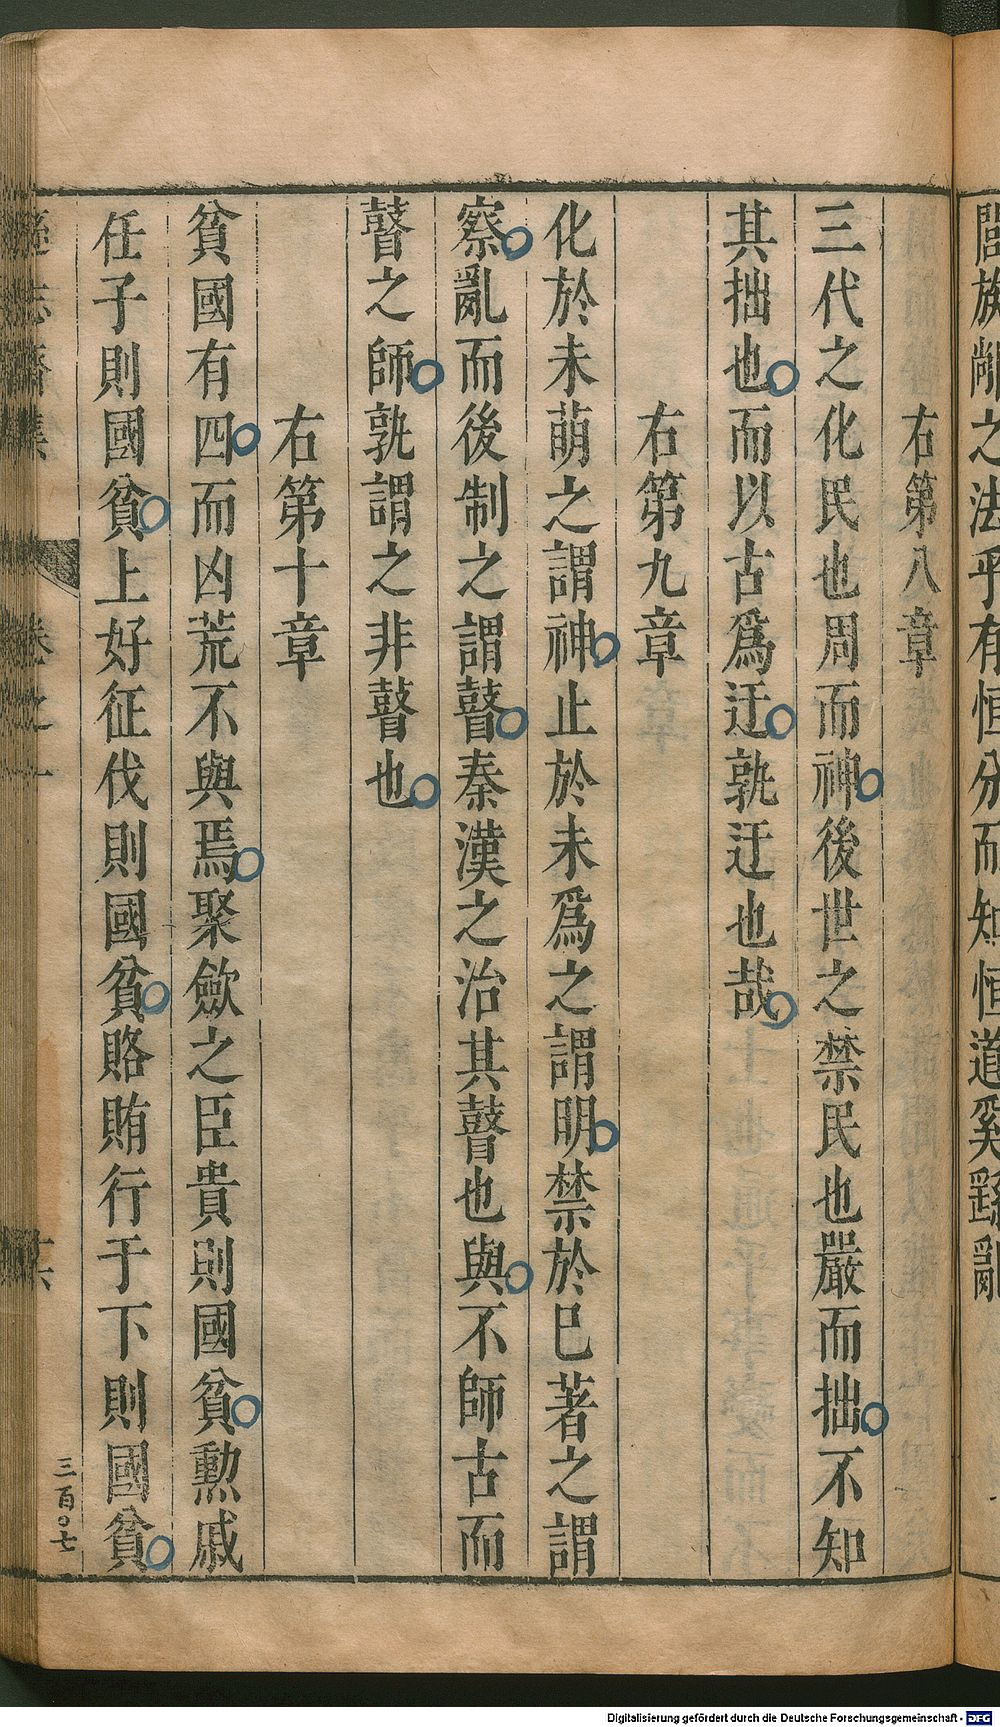 閭族敝之法乎有恒分而知恒道奚蹈亂
右第八章
三代之化民也周而神後世之禁民也嚴而拙不知
其拙也而以古爲迂孰迂也哉
右第九章
化於未萌之謂神止於未爲之謂明禁於巳著之謂
察亂而後制之謂瞽秦漢之治其瞽也與不師古而
瞽之師孰謂之非瞽也
右第十章
貧國有四而凶荒不與焉聚歛之臣貴則國貧勲戚
任子則國貧上好征伐則國貧賂賄行于下則國貧
遜志齋集
卷之一
十六
三百〇七
Digitalisierung gefördert durch die Deutsche Forschungsgemeinschaft - DFG